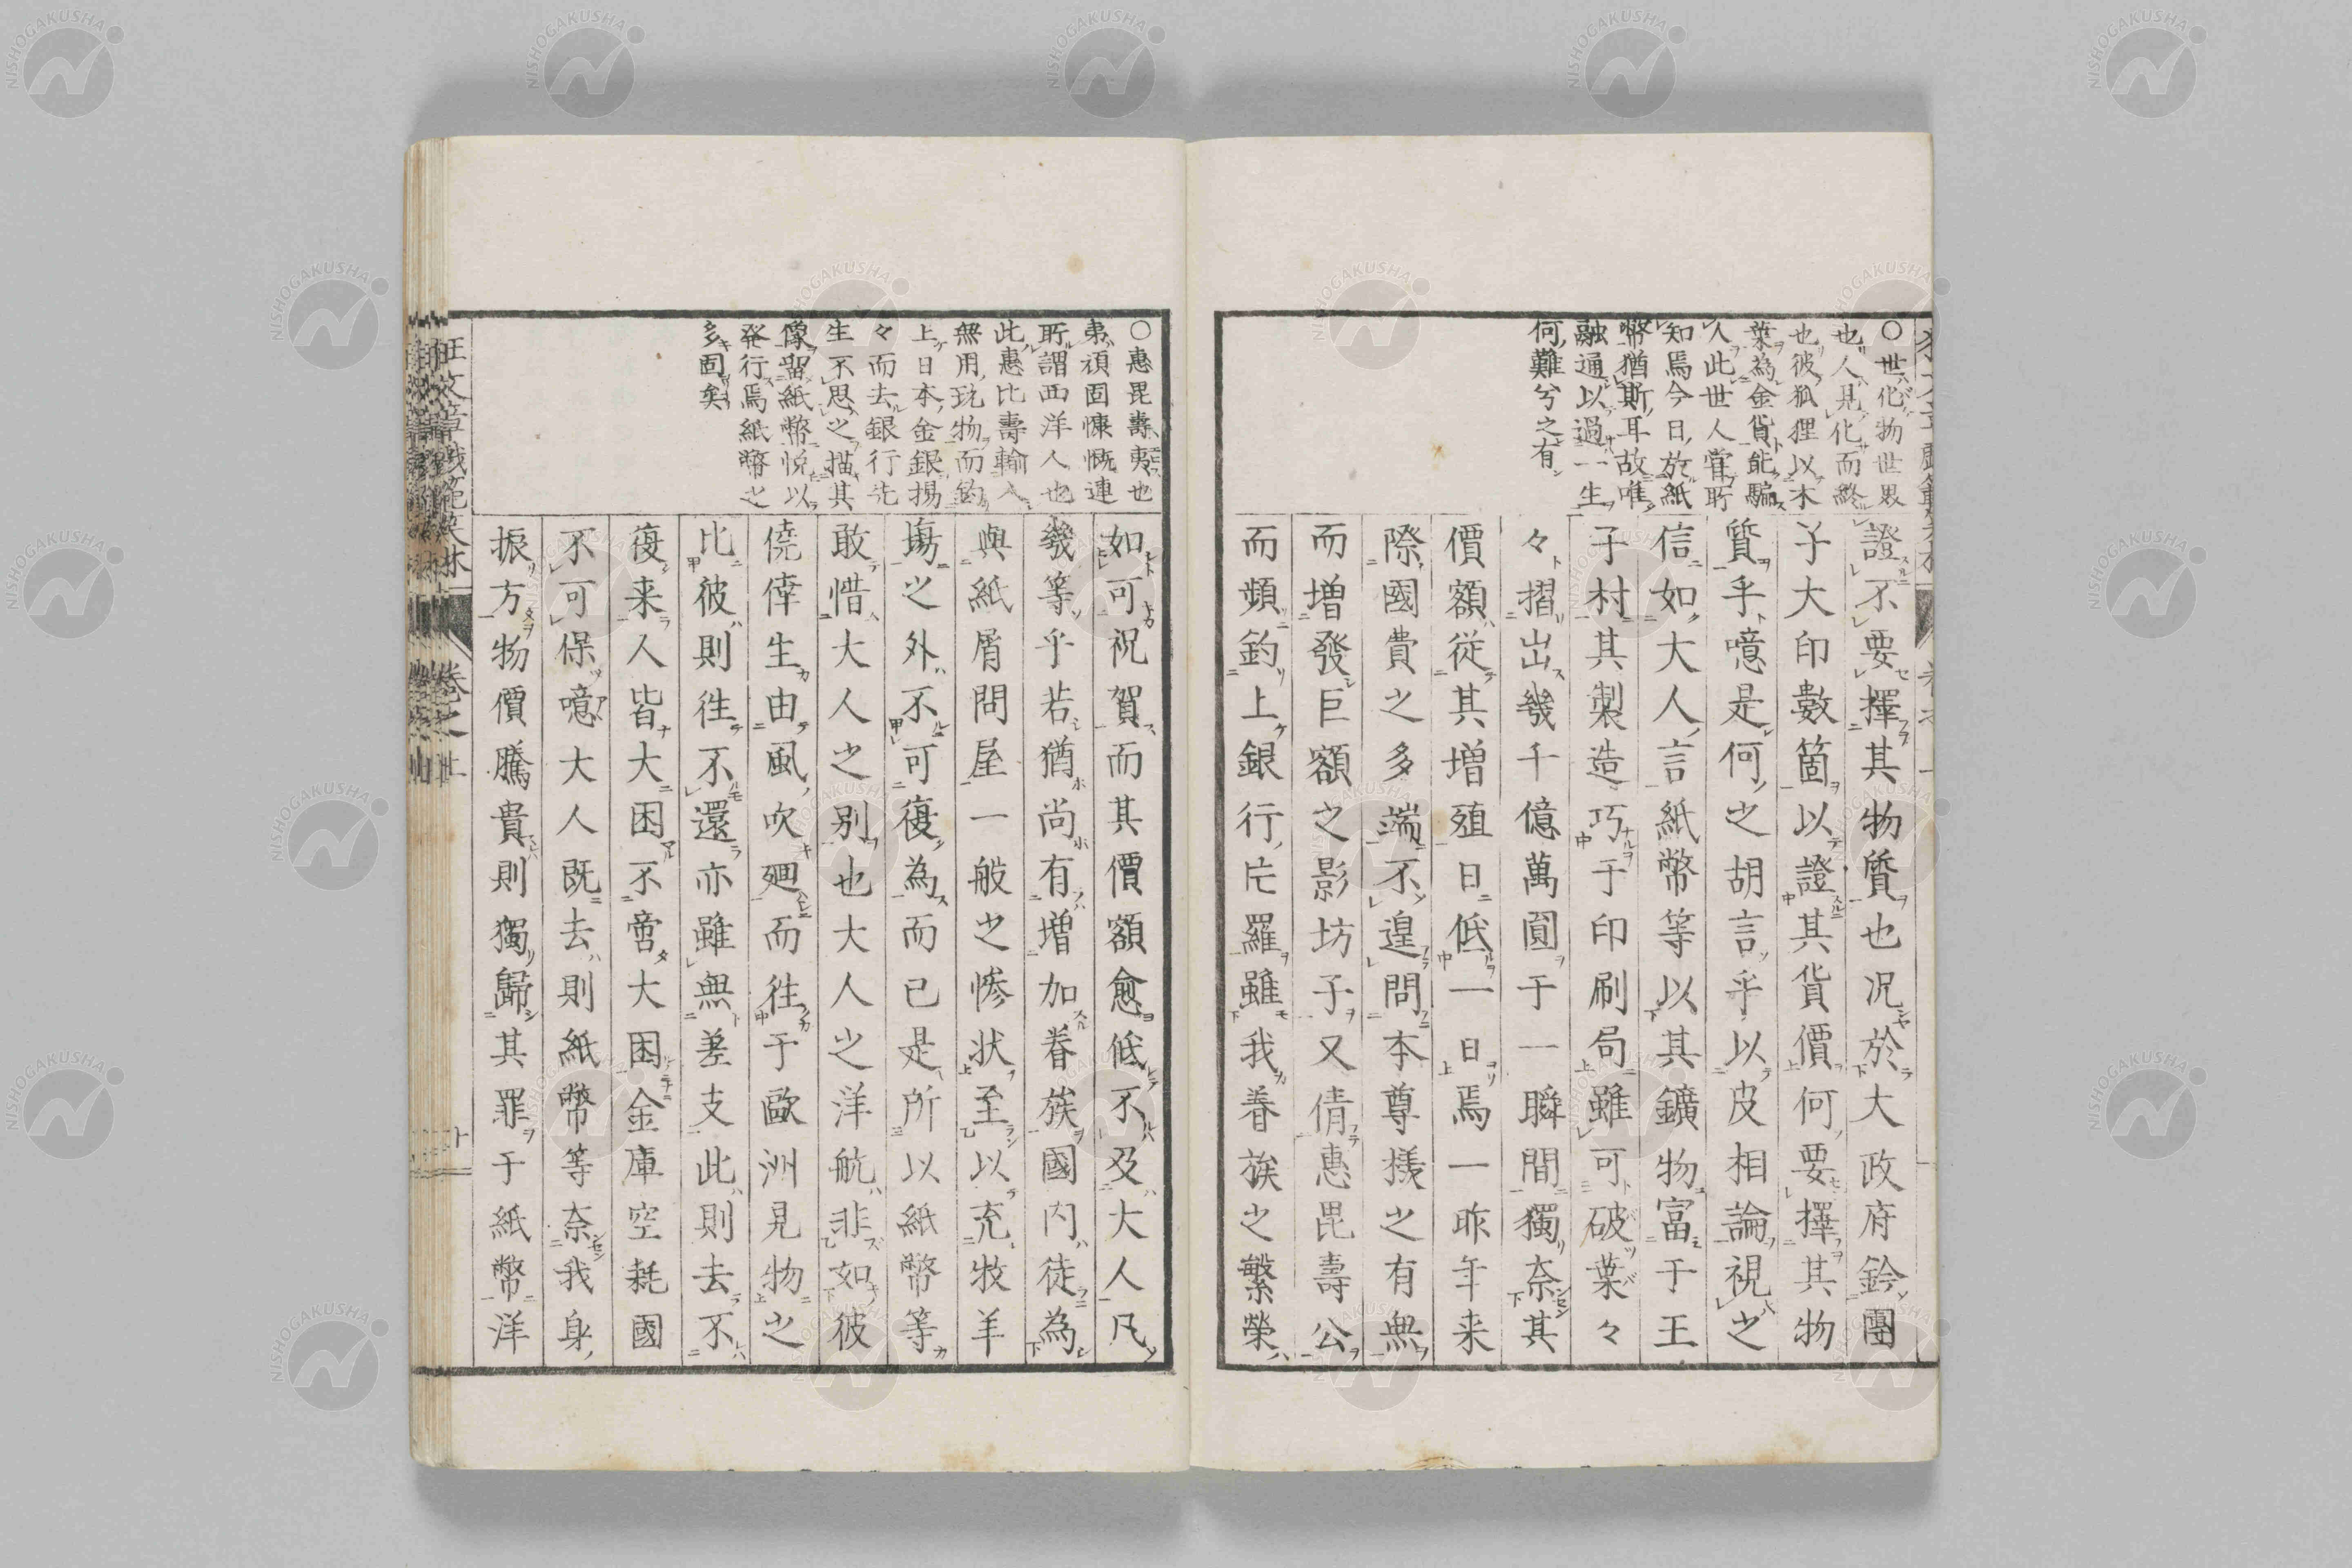 ○世化物世界
也人見化而終
也彼狐狸以木
葉為金貨能騙
人此世人嘗所
知焉今日於紙
幣猶斯耳故唯
融通以過一生
何難兮之有
證不要擇其物質也況於大政府鈴團
子大印數箇以證其貨價何要擇其物
質乎噫是何之胡言乎以皮相論視之
信如大人言紙幣等以其鑛物富于王
子村其製造巧于印刷局雖可破葉々
々摺出幾千億萬圓于一瞬間獨奈其
價額從其増殖日低一日焉一昨年来
際國費之多端不遑問本尊様之有無
而増發巨額之影坊子又倩惠毘壽公
而頻釣上銀行庀羅雖我眷族之繁榮
○惠毘壽夷也
夷頑固慷慨連
所謂西洋人也
此惠比壽輸入
無用玩物而釣
上日本金銀揚
々而去銀行先
生不思之描其
像留紙幣悦以
発行焉紙幣之
多固矣
如可祝賀而其價額愈低不及大人凡
幾等乎若猶尚有増加眷族國内徒為
與紙屑問屋一般之惨状至以充牧羊
場之外不可復為而已是所以紙幣等
敢惜大人之別也大人之洋航非如彼
僥倖生由風吹廻而往于歐洲見物之
比彼則往不還亦雖無差支此則去不
復来人皆大困不啻大困金庫空耗國
不可保噫大人既去則紙幣等奈我身
振方物價騰貴則獨歸其罪于紙幣洋